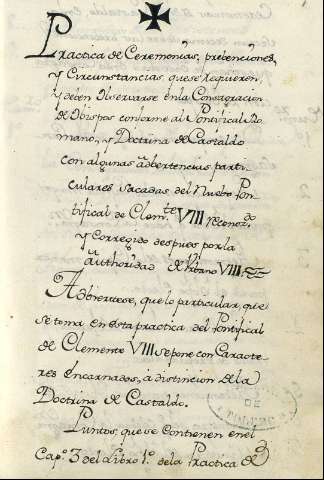 Practica de Ceremonias, prebenciones,
y Circunstancias que se requieren,
y deben Observarse en la Consagracion
de Obispos conforme al Pontifical Ro-
mano, y Doctrina de Castaldo
con algunas adbertencias parti-
culares sacadas del Nuebo Pon-
tifical de Clemte VIII reconodo
y Corregido despues por la
authoridad de Vrbano VIII
Adbiertese, que lo particular, que
se toma en esta practica del Pontifical
de Clemente VIII se pone con Caracte-
res Encarnados, a distincion de la
Doctrina de Castaldo.
Puntos, que se contienen en el
Capo 3 del Libro 1o de la Practica de
DE